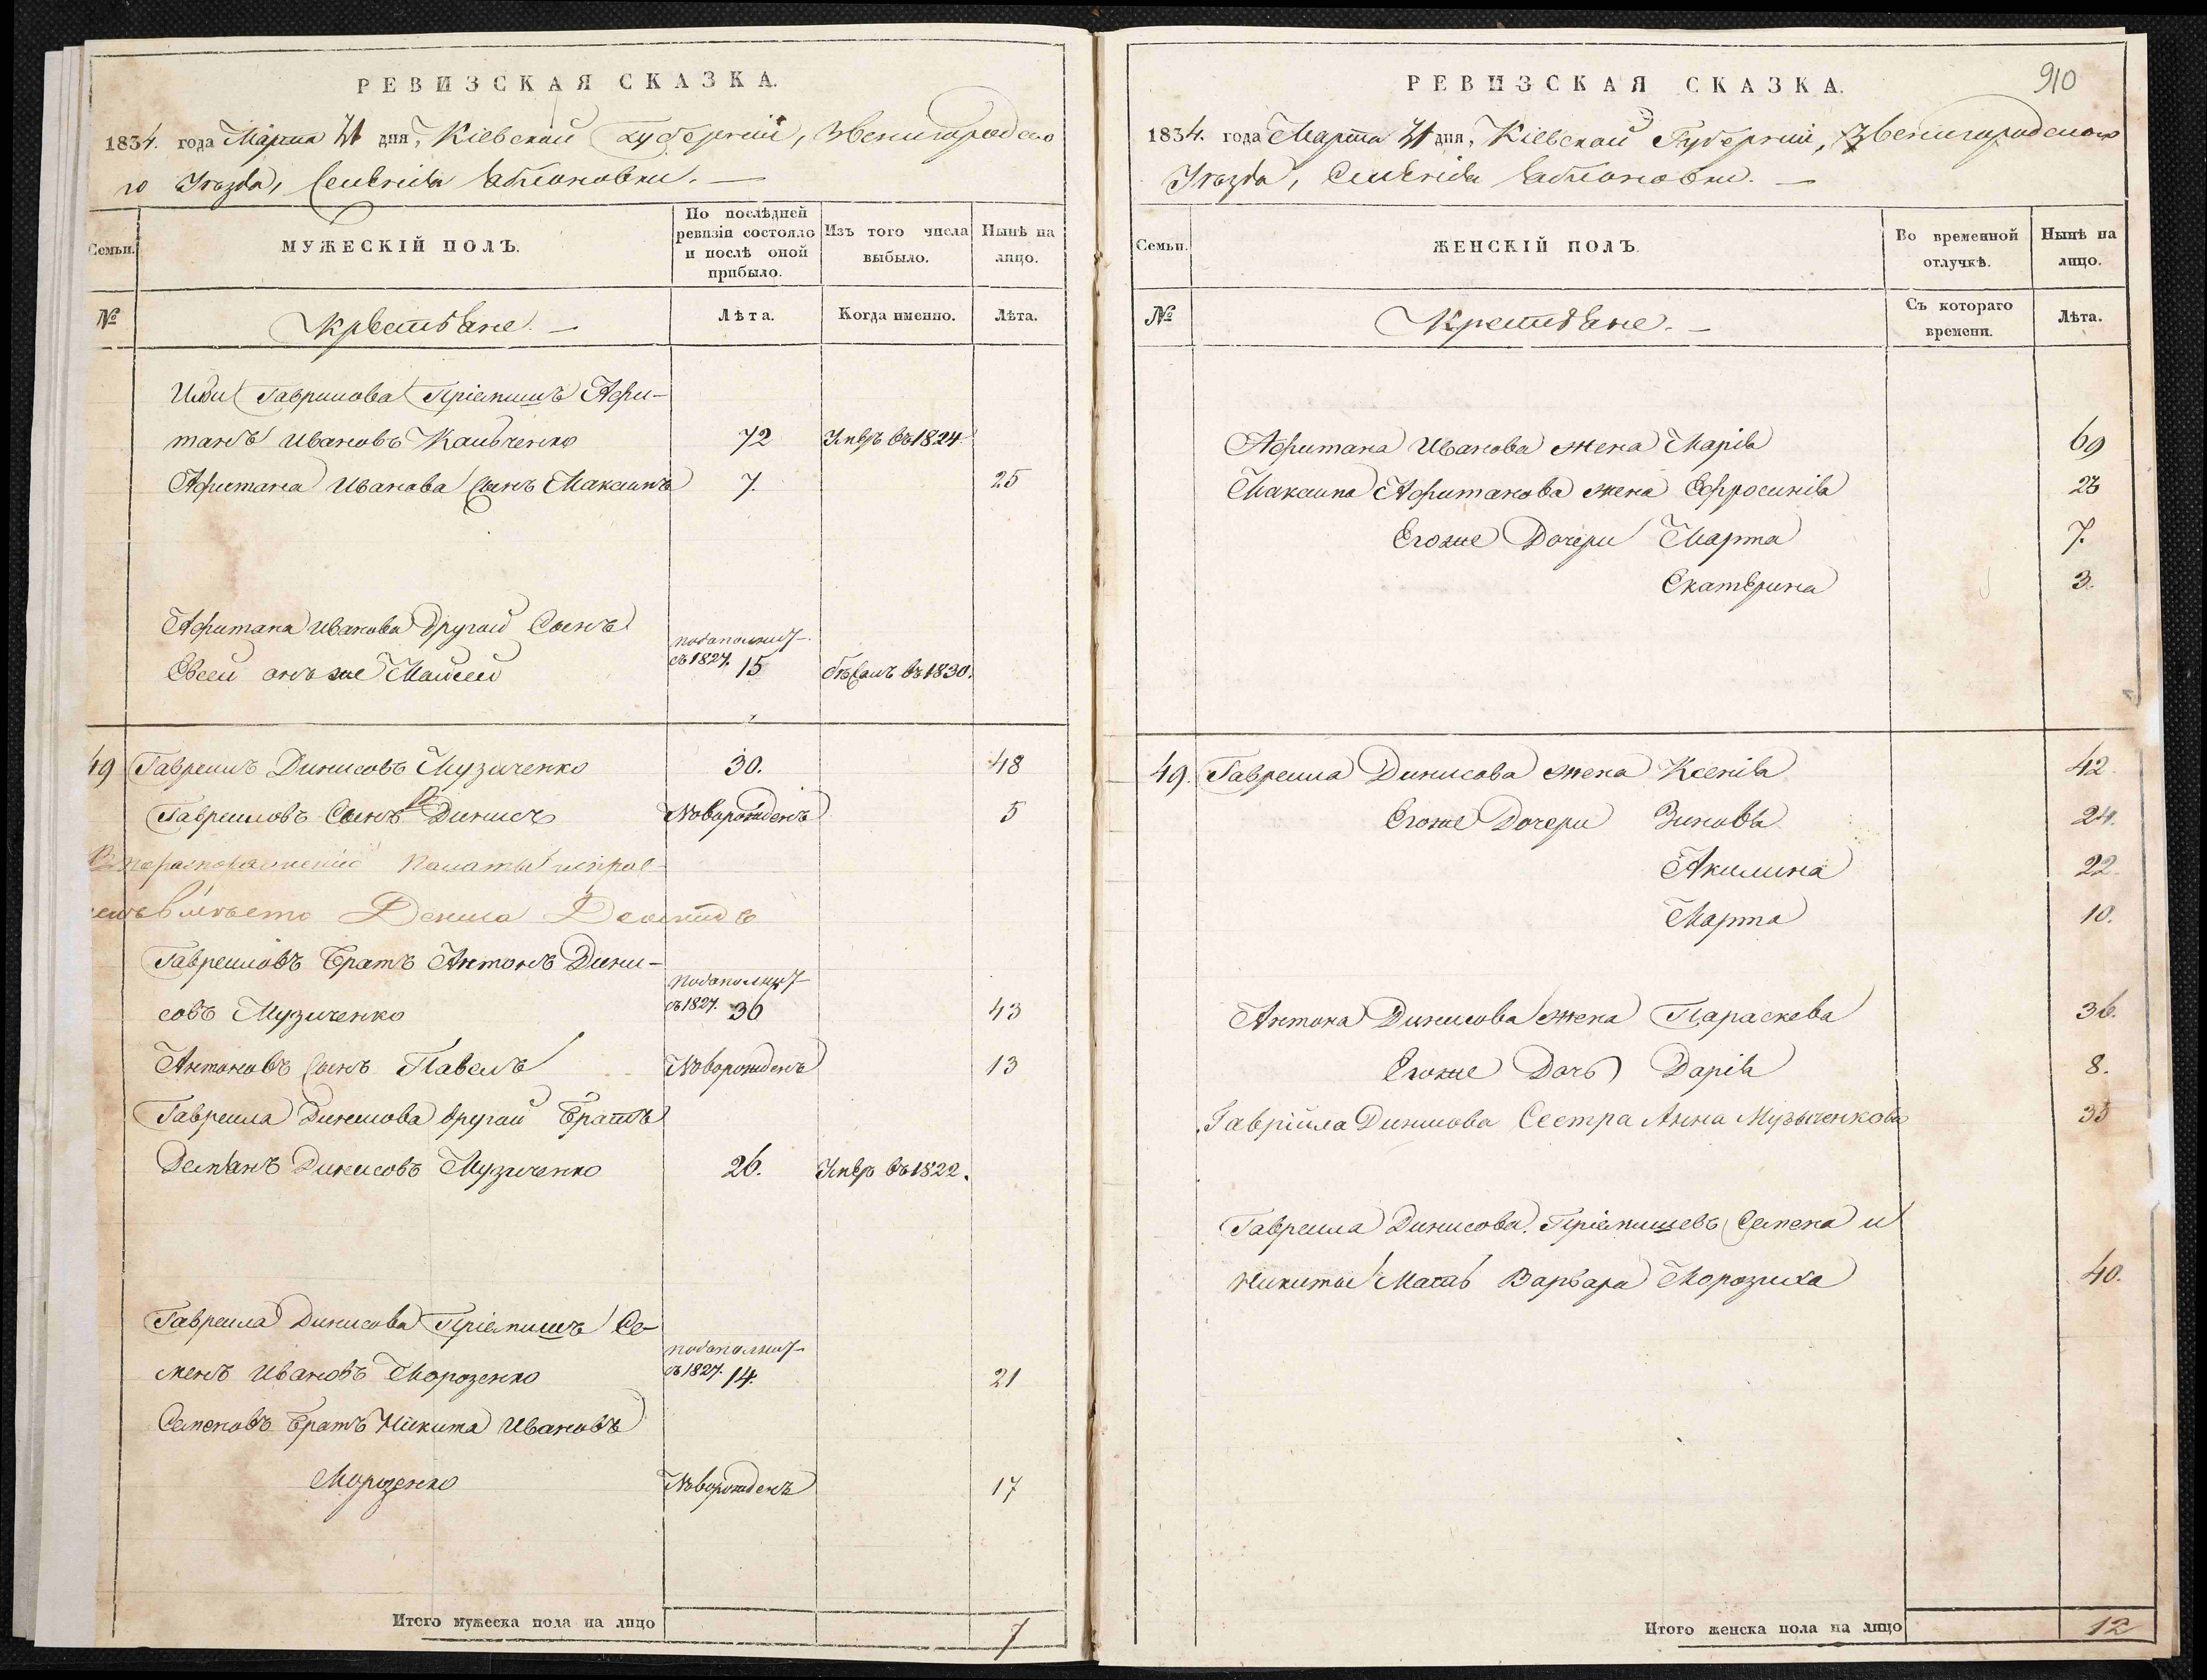 РЕВИЗСКАЯ СКАЗКА.
1834. года Марта 31 дня, Кіевской Губерніи, Звенигородско
го Уезда, Селенія Яблоновки. —
Семьи.
МУЖЕСКІЙ ПОЛЪ.
По послѣдней ревизіи состояло и послѣ оной прибыло.
Изъ того числа выбыло.
Нынѣ на лицо.
№
Крестьяне. —
Лѣта.
Когда именно.
Лѣта.
Гаврилова Пріемышъ
Ивановъ 72 въ 1824
Иванова Сынъ Максимъ 7. 25
Иванова Другой Сынъ
онъ же Мойсей съ 1827. 15 въ 1830.
49 Гавреилъ Динисовъ Музиченко 30. 48
Гавреиловъ Сынъ Динисъ Новорожденъ 5
Палаты
вмѣсто Дениса
Гавреиловъ Братъ Антонъ Дини-
совъ Музиченко съ 1827. 36 43
Антоновъ Сынъ Павелъ Новорожденъ 13
Гавреила Динисова другой Братъ
Демьянъ Динисовъ Музиченко 26. Умеръ въ 1822.
Гавреила Динисова Пріемышъ Се-
менъ Ивановъ Морозенко съ 1827. 14. 21
Семеновъ Братъ Никита Ивановъ
Морозенко Новорожденъ 17
Итого мужеска пола на лицо 7
910
РЕВИЗСКАЯ СКАЗКА.
1834. года Марта 31 дня, Кіевской Губерніи, Звенигородского
Уезда, Селенія Яблоновки. —
Семьи.
ЖЕНСКІЙ ПОЛЪ.
Во временной отлучкѣ.
Нынѣ на лицо.
№
Крестьяне. —
Съ котораго времени.
Лѣта.
Иванова жена Марія 69
Максима жена Ефросинія 23
Егоже Дочери Марта 7.
Екатерина 3.
49. Гавреила Динисова жена Ксенія 42.
Егоже Дочери Зиновія 24.
Акилина 22.
Марта 10.
Антона Динисова жена Параскева 36.
Егоже Дочь Дарія 8.
Гавріила Динисова Сестра Анна Музыченкова 35
Гавреила Динисова Пріемышевъ Семена и
Никиты Мать Варвара Морозиха 40.
Итого женска пола на лицо 12